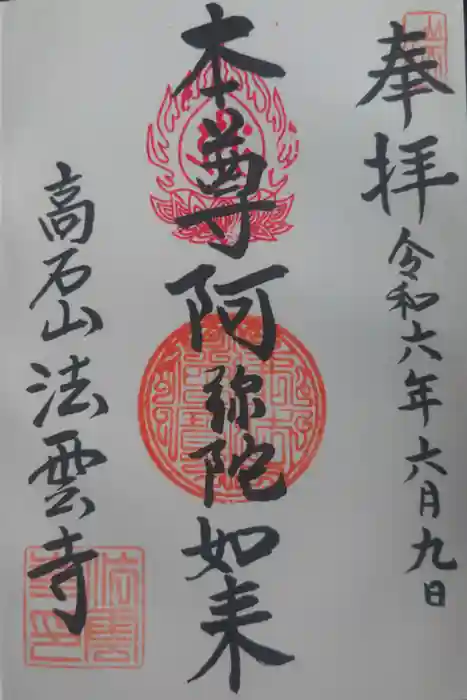 奉拝
令和六年六月九日
本尊阿弥陀如来
高石山法雲寺